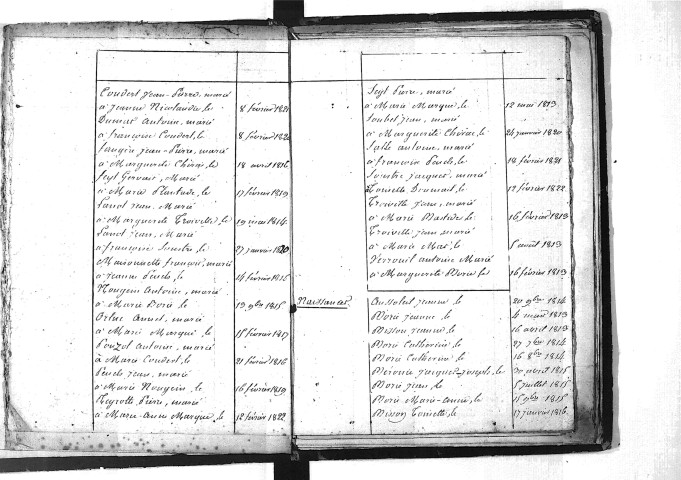 Coudert Jean-Pierre, marié
à Jeanne Nicolaudie, le 8 février 1821
Dumas Antoine, marié
à françoise Coudert, le 8 février 1820
Jean-Pierre, marié
à Marguerite Chièze, le 18 avril 1816
Seyl Gervais, Marié
à Marie Plantade, le 17 février 1819
Sanot Jean, Marié
à Marguerite Troivette, le 19 mai 1814
Sanot Jean, Marié
à françoise le 27 janvier 1820
françois, marié
à Jeanne le 24 février 1815
Nougein Antoine, marié
à Marie Borie, le 19 9bre 1815
marié
à Marie Marque, le 15 février 1817
Pouzol Antoine, marié
à Marie Coudert, le 21 février 1816
Jean, marié
à Marie Nougein, le 16 février 1819
Teyrotte Pierre, marié
à Marie-Anne Marque, le 12 février 1822
Seyl Pierre, marié
à Marie Marque, le 12 mai 1813
Jean, marié
à Marguerite Chièze, le 24 janvier 1820
Antoine, marié
à françoise le 18 février 1821
Jacques, marié
le 12 février 1822
Troivette Jean, marié
à Marie le 16 février 1813
Troivette Jean, marié
à Marie Mas, le avril 1813
Verrouil Antoine Marié
à Marguerite Borie, le 16 février 1813
Naissances
Jeanne, le 20 9bre 1814
Borie Jeanne, le 4 mai 1813
Bisson Jeanne, le 16 avril 1813
Borie Catherine, le 27 7bre 1814
Borie Catherine, le 16 8bre 1814
Jacques-Joseph, le 20 avril 1815
Borie Jean, le juillet 1815
Borie Marie-Anne, le 15 9bre 1815
Bisson Toinette, le 17 janvier 1816